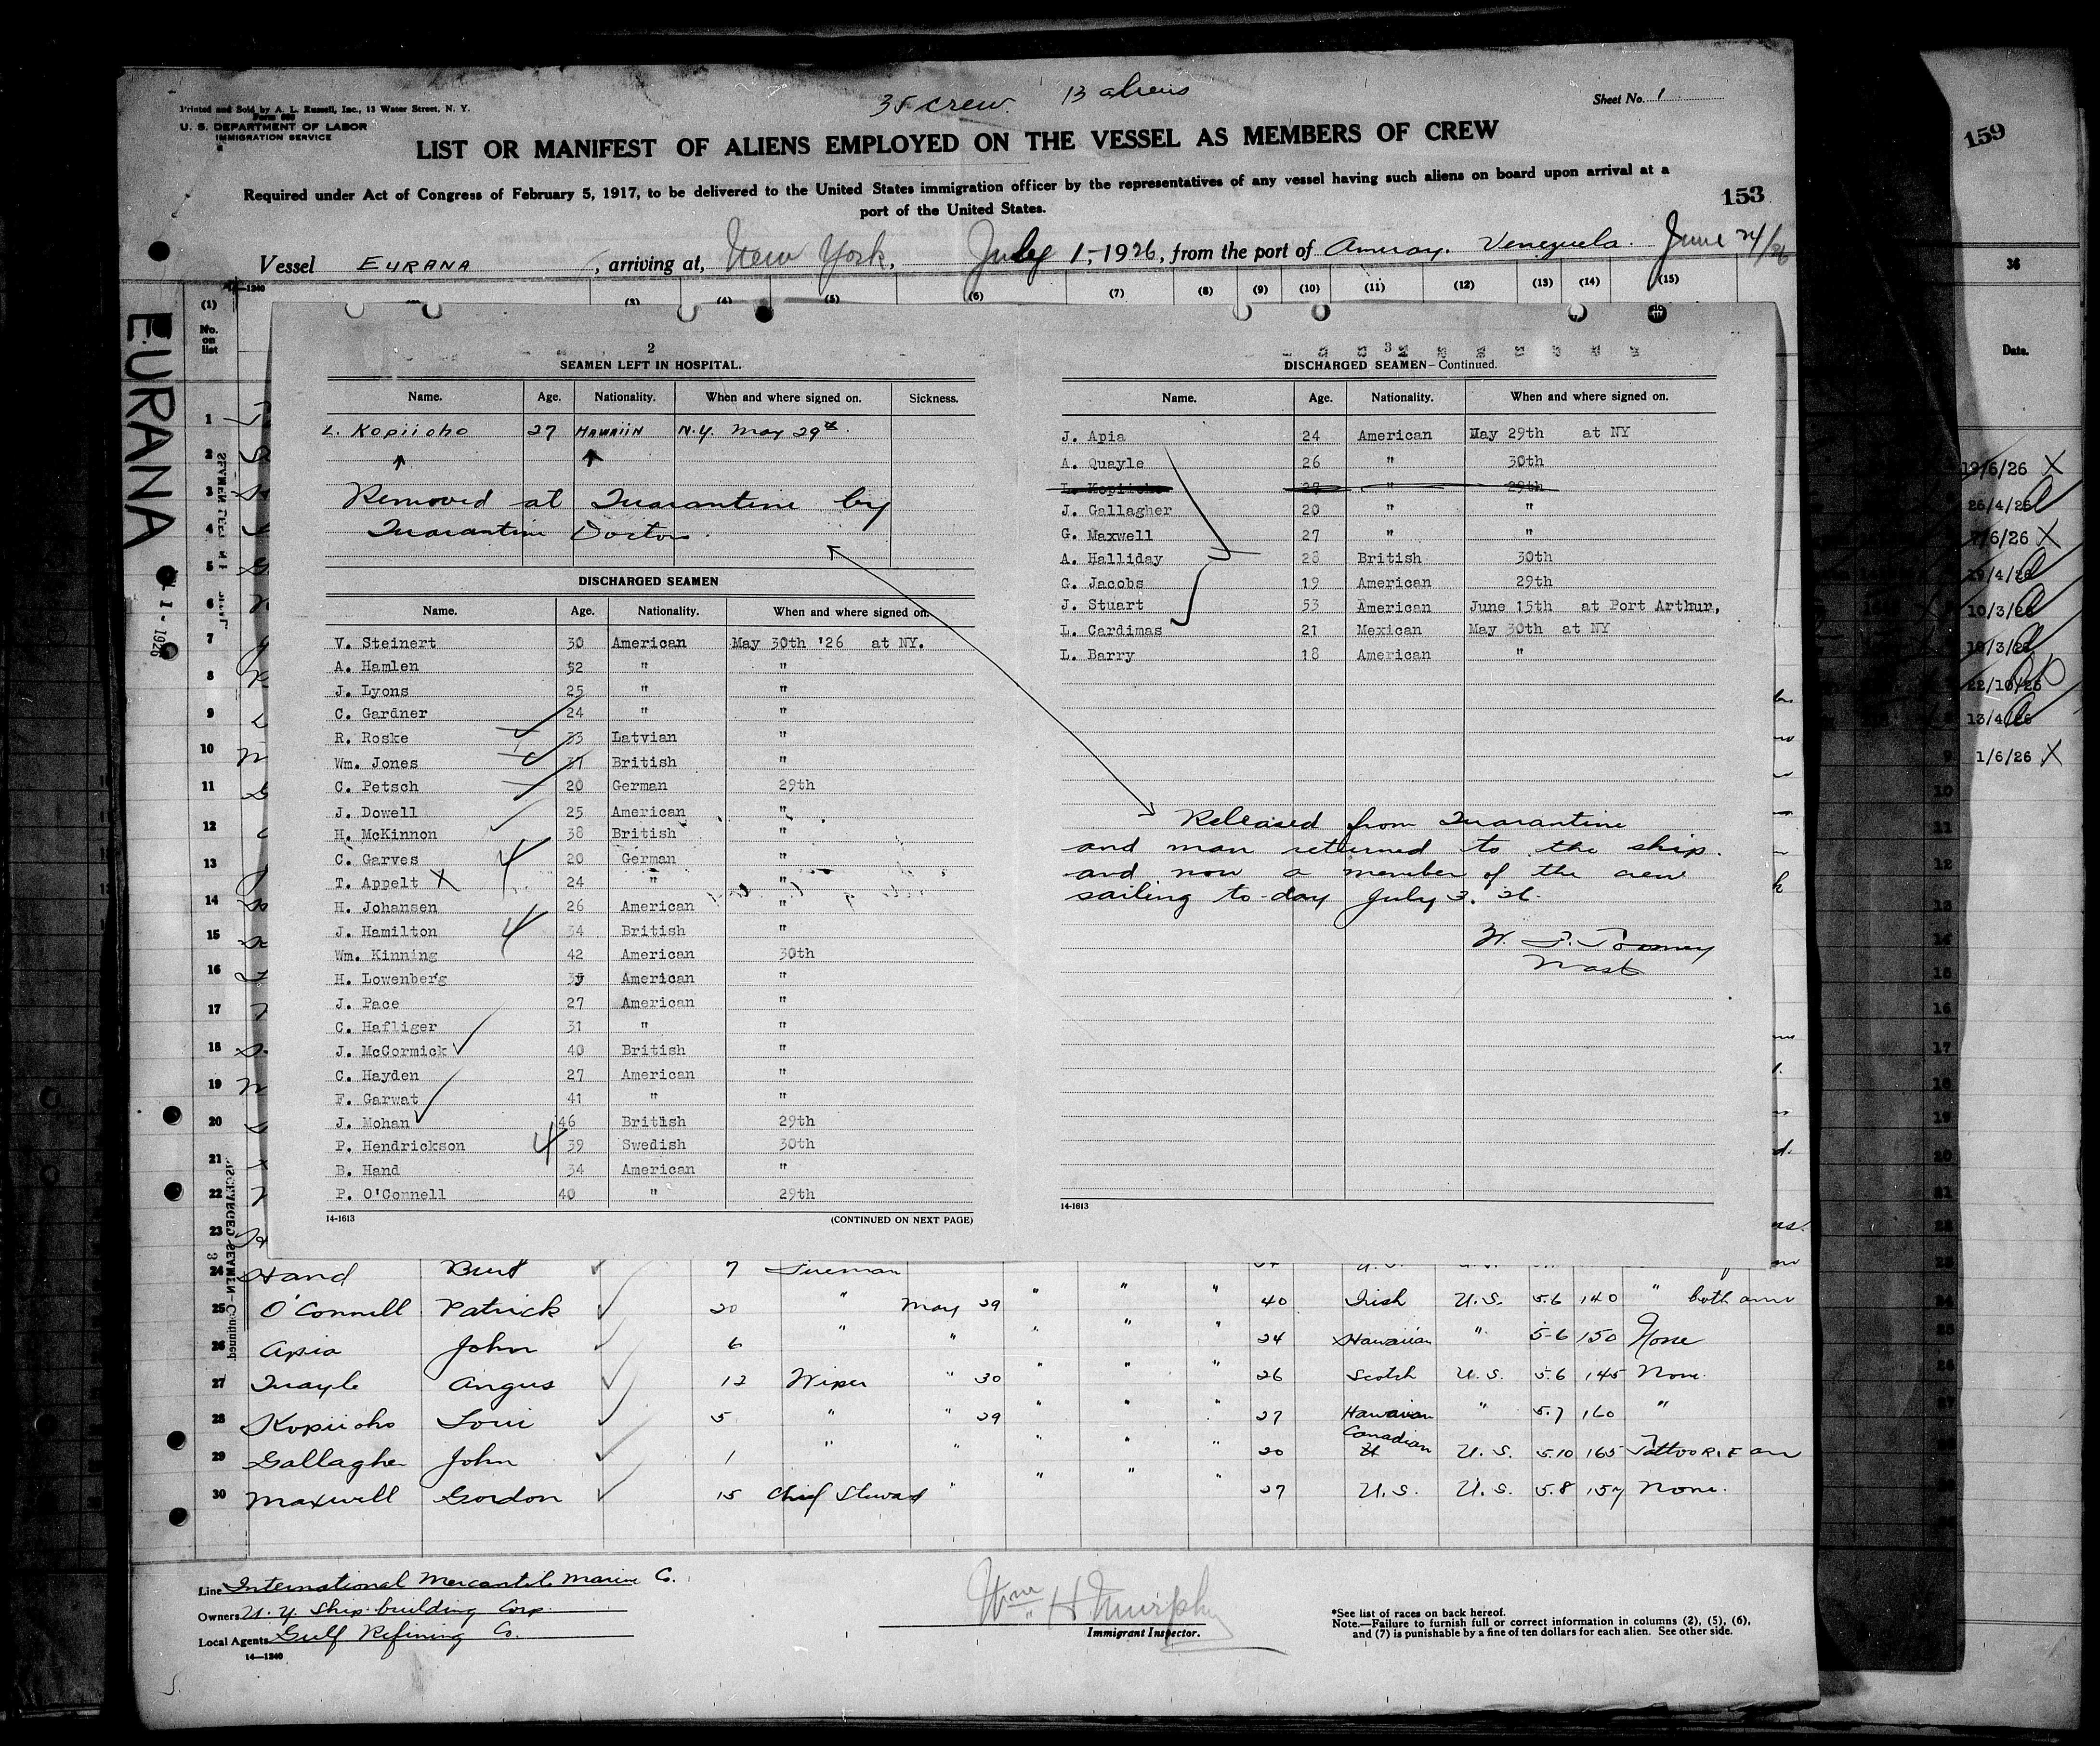 35 crew 13 aliens
Sheet No. 1
Printed and Sold by A. L. Russell, Inc., 13 Water Street, N. Y.
Form 680
U. S. DEPARTMENT OF LABOR
IMMIGRATION SERVICE
LIST OR MANIFEST OF ALIENS EMPLOYED ON THE VESSEL AS MEMBERS OF CREW
Required under Act of Congress of February 5, 1917, to be delivered to the United States immigration officer by the representatives of any vessel having such aliens on board upon arrival at a
port of the United States.
153
159
Vessel EURANA, arriving at, New York, July 1, 1926, from the port of Amuay. Venezuela. June 24/26
14-1240
(1) (3) (4) (5) (6) (7) (8) (9) (10) (11) (12) (13) (14) (15)
No. on list
EURANA
1 - 1926
36
Date.
2
SEAMEN LEFT IN HOSPITAL.
Name. Age. Nationality. When and where signed on. Sickness.
L. Kopiioho 27 HAWAIIN N.Y. May 29th.
Removed at Quarantine by
Quarantine Doctor.
DISCHARGED SEAMEN
Name. Age. Nationality. When and where signed on.
V. Steinert 30 American May 30th '26 at NY.
A. Hamlen 52 " "
J. Lyons 25 " "
C. Gardner 24 " "
R. Roske 33 Latvian "
Wm. Jones 37 British "
C. Petsch 20 German 29th
J. Dowell 25 American "
H. McKinnon 38 British "
C. Garves 20 German "
T. Appelt X 24 " "
H. Johansen 26 American "
J. Hamilton 34 British "
Wm. Kinning 42 American 30th
H. Lowenberg 35 American "
J. Pace 27 American "
C. Hafliger 31 " "
J. McCormick 40 British "
C. Hayden 27 American "
F. Garwat 41 " "
J. Mohan 46 British 29th
P. Hendrickson 39 Swedish 30th
B. Hand 34 American "
P. O'Connell 40 " 29th
14-1613 (CONTINUED ON NEXT PAGE)
3
DISCHARGED SEAMEN—Continued.
Name. Age. Nationality. When and where signed on.
J. Apia 24 American May 29th at NY
A. Quayle 26 " 30th
L. Kopiioho 27 " 29th
J. Gallagher 20 " "
G. Maxwell 27 " "
A. Halliday 28 British 30th
G. Jacobs 19 American 29th
J. Stuart 53 American June 15th at Port Arthur,
L. Cardimas 21 Mexican May 30th at NY
L. Barry 18 American "
Released from Quarantine
and man returned to the ship.
and now a member of the crew
sailing to-day July 3. 26.
Mast
14-1613
1
2
3
4
5
6
7
8
9
10
11
12
13
14
15
16
17
18
19
20
21
22
23
24 Hand Burt 7 Fireman
25 O'Connell Patrick 20 " May 29 " " " 40 Irish U.S. 5.6 140 " both arms
26 Apia John 6 " " " " " 24 Hawaiian " 5-6 150 None
27 Quayle Angus 12 Wiper " 30 " " " 26 Scotch U.S. 5.6 145 None.
28 Kopiioho Loui 5 " " 29 " " " 27 Hawaiian " 5.7 160 "
29 Gallagher John 1 " " " " " 20 Canadian U.S. 5.10 165 Tattoo R.F arm
30 Maxwell Gordon 15 Chief Steward " " " " 27 U.S. U.S. 5.8 157 None.
26/4/26
10/3/26
22/10/25
13/4/26
1/6/26 X
Line International Mercantile Marine Co.
Owners N.Y. Ship building Corp.
Local Agents Gulf Refining Co.
14—1240
Wm H. Murphy
Immigrant Inspector.
*See list of races on back hereof.
Note.—Failure to furnish full or correct information in columns (2), (5), (6),
and (7) is punishable by a fine of ten dollars for each alien. See other side.